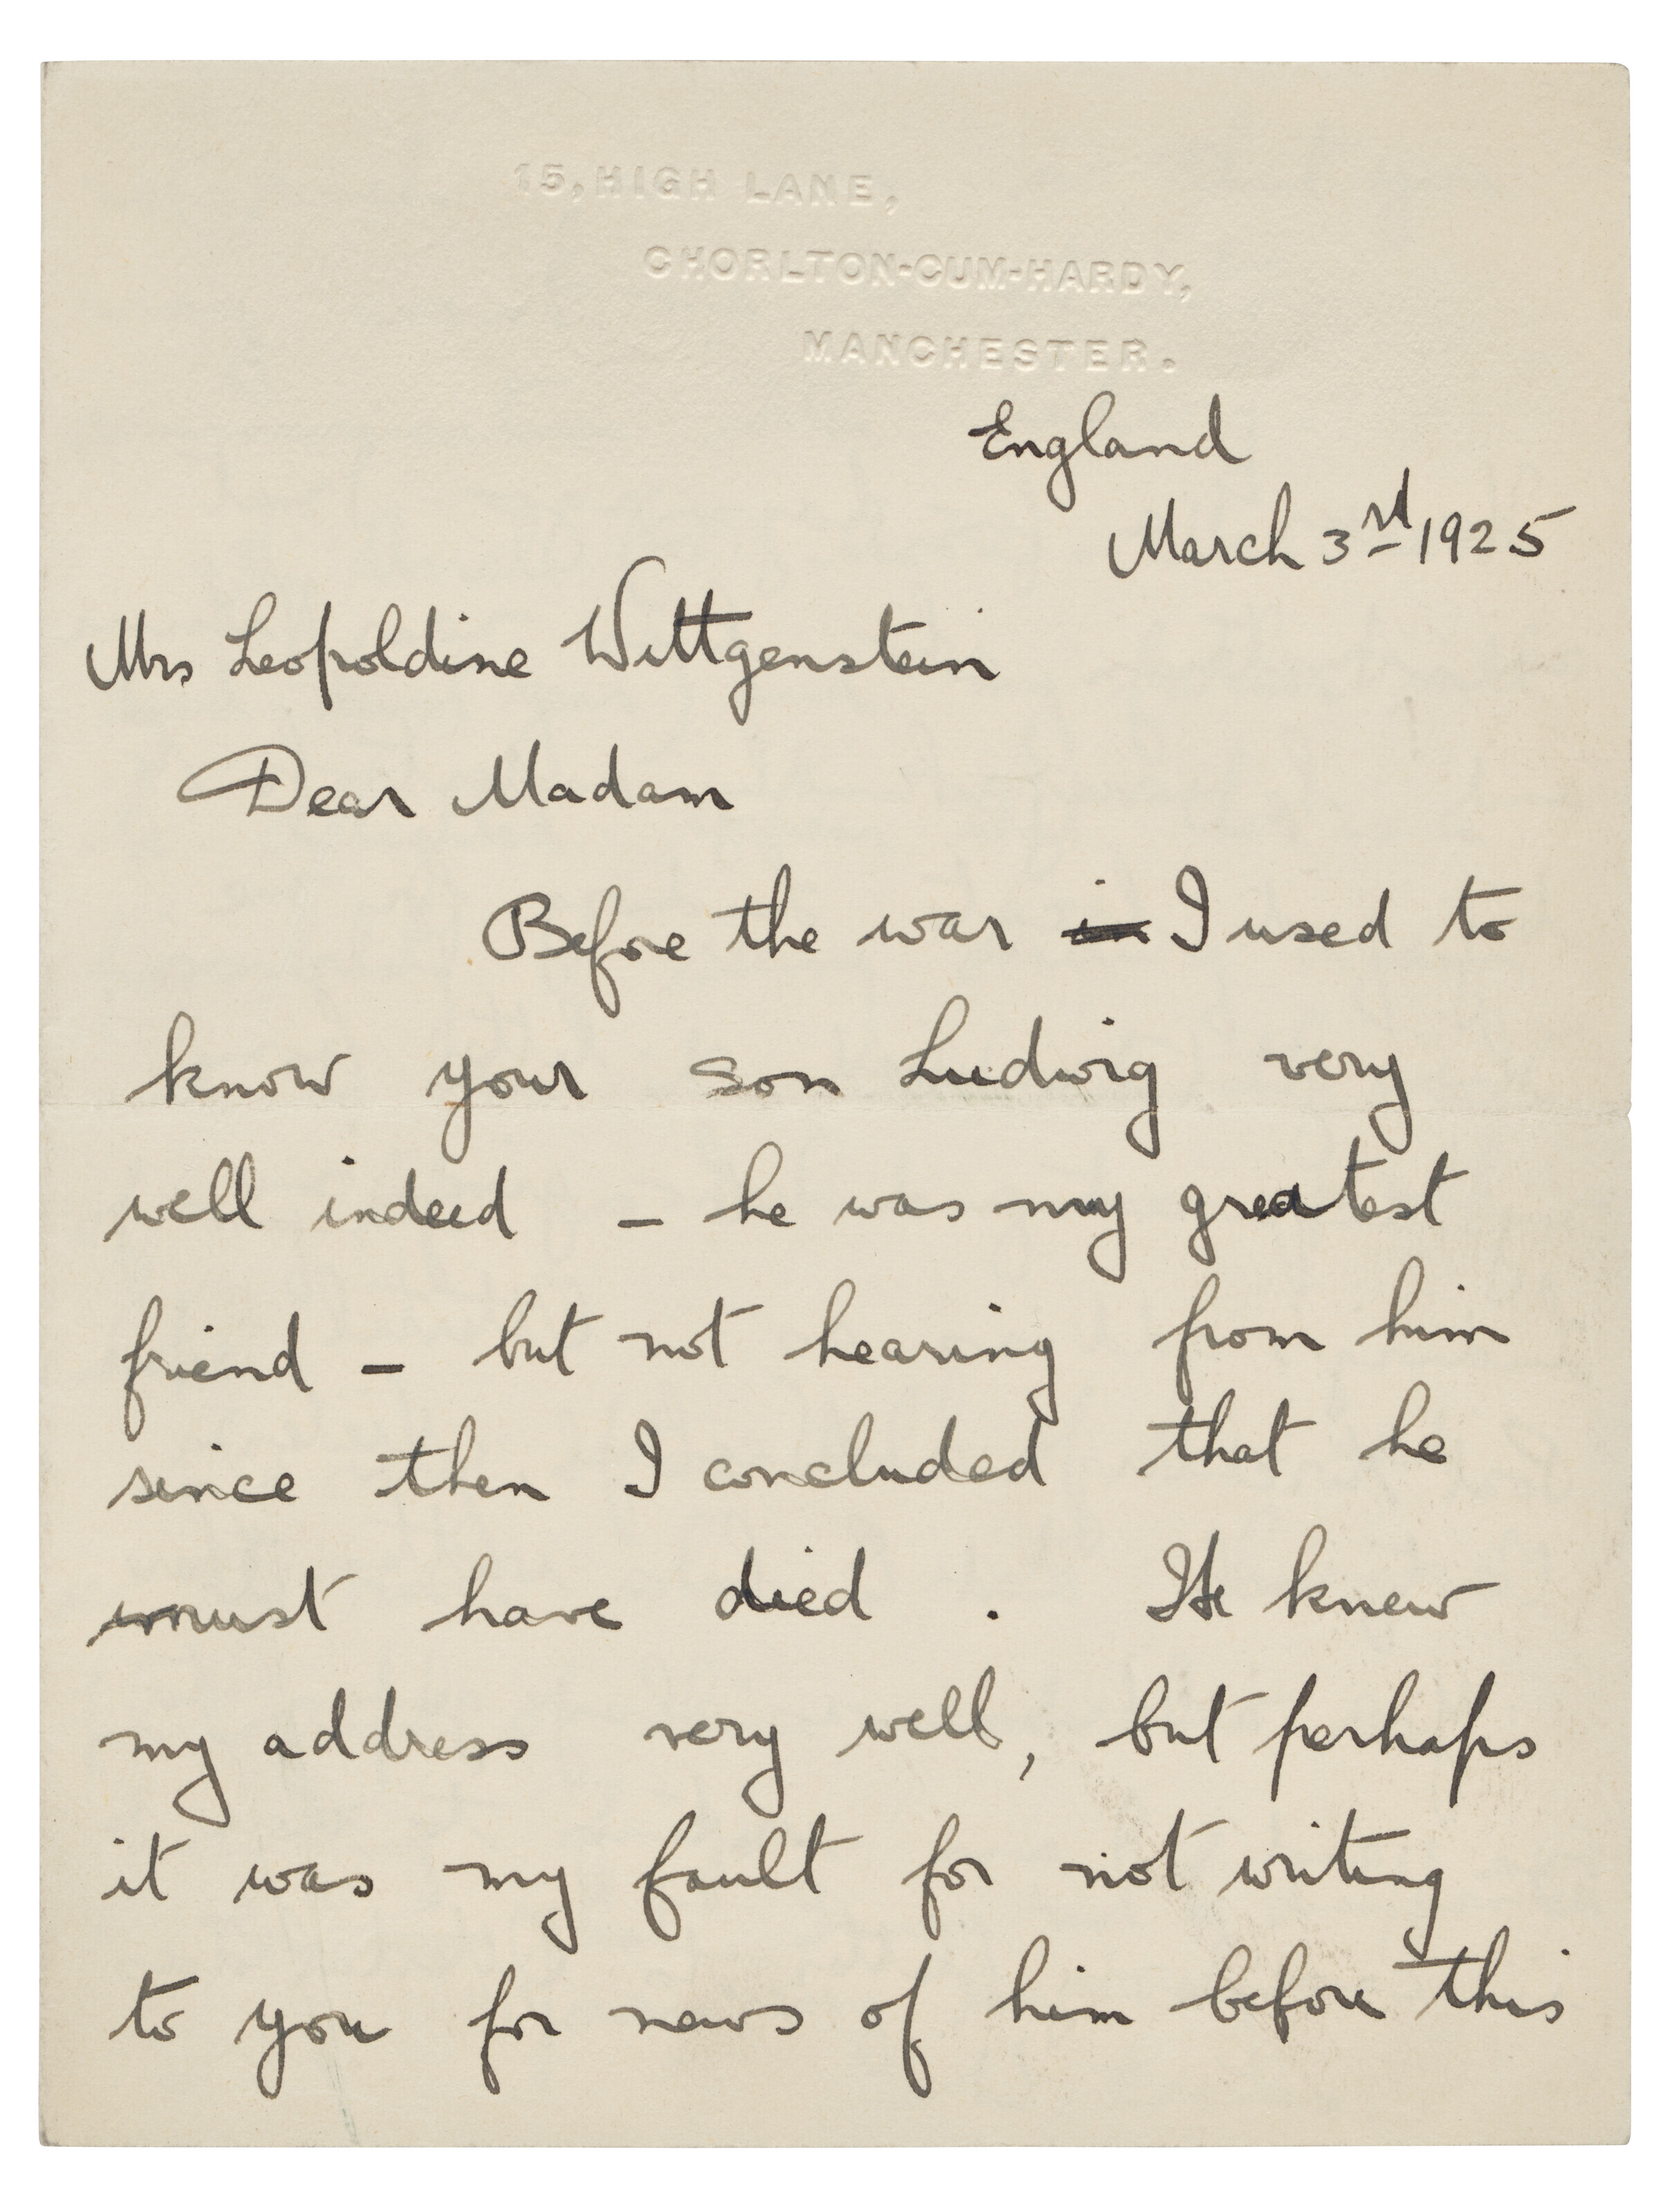 15, HIGH LANE,
CHORLTON-CUM-HARDY,
MANCHESTER.
England
March 3rd 1925
Mrs Leopoldine Wittgenstein
Dear Madam
Before the war in I used to
know your son Ludwig very
well indeed – he was my greatest
friend – but not hearing from him
since then I concluded that he
must have died . He knew
my address very well, but perhaps
it was my fault for not writing
to you for news of him before this